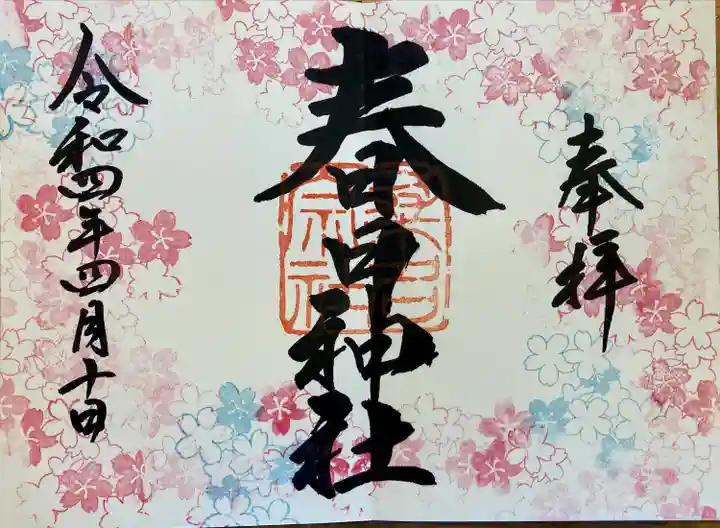 奉拝
春日神社
令和四年四月十日